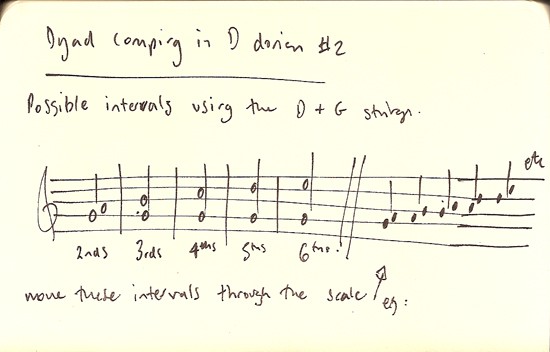 Dyad comping in D dorian #2
Possible intervals using the D + G strings.
etc
2nds 3rds 4ths 5ths 6ths
move these intervals through the scale eg: